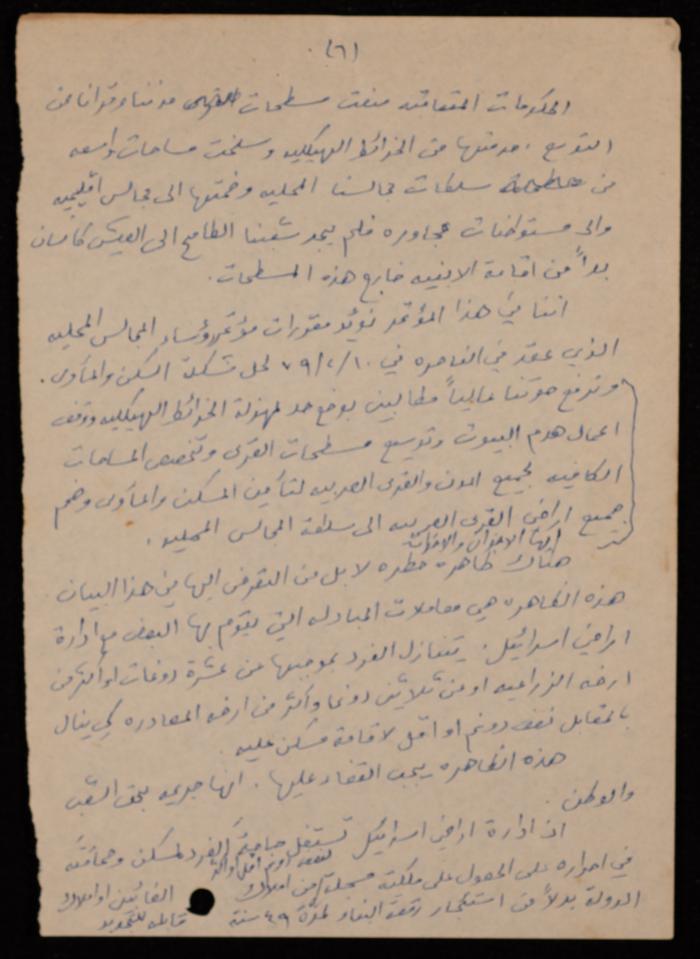 (٦)
الحكومات المتعاقبه منعت مسطحات مدننا وقرانا من
التوسع، حرمتها من الخرائط الهيكليه وسلخت مساحات واسعه
من سلطات مجالسنا المحليه وضمتها الى مجالس اقليميه
والى مستوطنات مجاوره فلم يجد شعبنا الطامح الى العيش كانسان
بداً من اقامة الابنيه خارج هذه المسطحات.
اننا في هذا المؤتمر نؤيد مقررات مؤتمر رؤساء المجالس المحليه
الذي عقد في الناصره في ٧٩/٢/١٠ لحل مشكلة السكن والمأوى.
ونرفع صوتنا عالياً مطالبين بوضع حد لمهزلة الخرائط الهيكليه ووقف
اعمال هدم البيوت وتوسيع مسطحات القرى وتخصيص المساحات
الكافيه لجميع المدن والقرى العربيه لتأمين المسكن والمأوى وضم
جميع اراضي القرى العربيه الى سلطة المجالس المحليه.
ايها الاخوان والاخوات
هناك ظاهره خطره لا بد من التعرض اليها في هذا البيان
هذه الظاهره هي معاملات المبادله التي يقوم بها البعض مع ادارة
اراضي اسرائيل. يتنازل الفرد بموجبها عن عشرة دونمات او أكثر من
ارضه الزراعيه او عن ثلاثين دونما وأكثر من ارضه المصادره كي ينال
بالمقابل نصف دونم او اقل لاقامة مسكن عليه
هذه الظاهره يجب القضاء عليها. انها جريمه بحق الشعب
والوطن.
ان ادارة اراضي اسرائيل تستغل حاجة الفرد لمسكن وحماقته
لنصف دونم اقل او اكثر
في اصراره على الحصول على ملكية مسجله من املاك الغائبين او املاك
الدولة بدلاً من استئجار رقعة البناء لمدة ٤٩ سنة قابله للتجديد